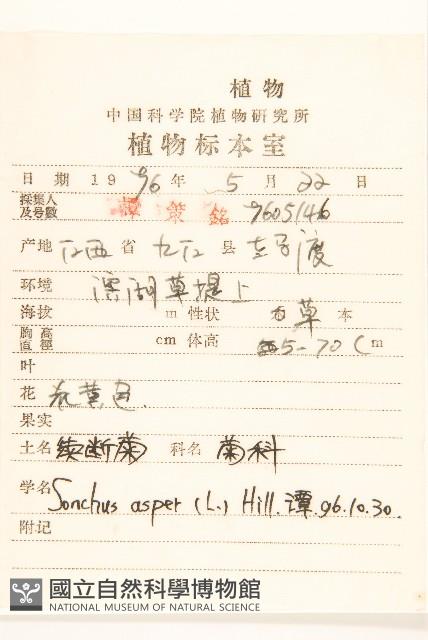 植物
中国科学院植物研究所
植物标本室
日期 1996年 5月 22日
採集人及号數 譚策銘 9605146
产地 江西省 九江县
环境 湖草堤上
海拔 m 性状 草本
胸高直徑 cm 体高 5-70 Cm
叶
花 黄色.
果实
土名 续断菊 科名 菊科
学名 Sonchus asper (L.) Hill. 谭. 96.10.30.
附记
國立自然科學博物館
NATIONAL MUSEUM OF NATURAL SCIENCE